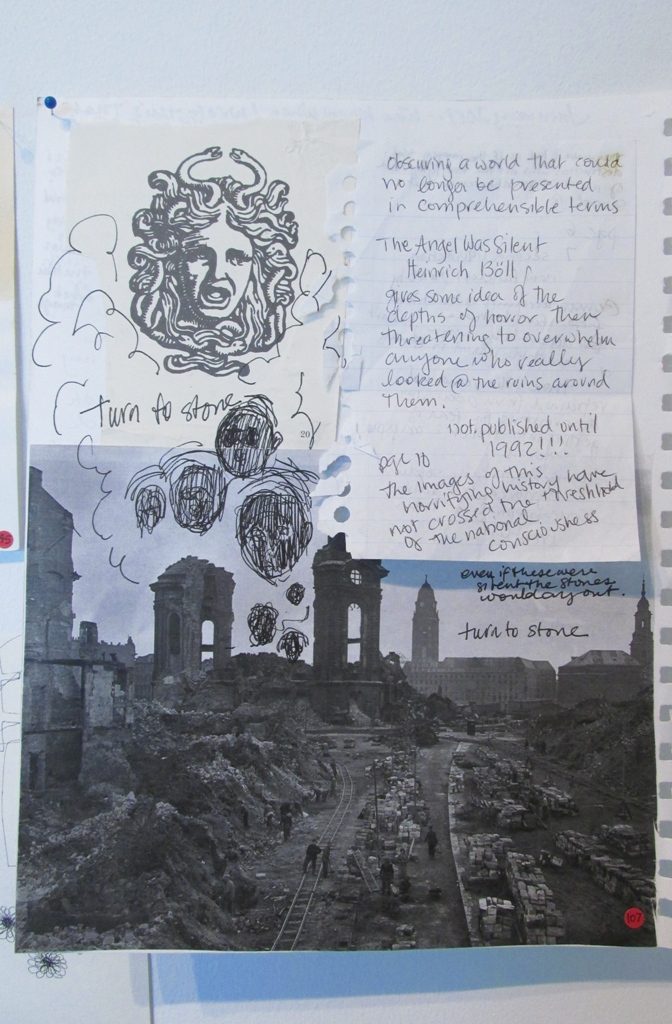 obscuring a world that could
no longer be presented
in comprehensible terms
The Angel Was Silent
Heinrich Böll
gives some idea of the
depths of horror then
threatening to overwhelm
anyone who really
looked @ the ruins around
them.
not published until
1992!!!
page 10
the images of this
horrifying history have
not crossed the threshhold
of the national
consciousness
turn to stone
20
even if these were
silent the stones
would cry out.
turn to stone
107